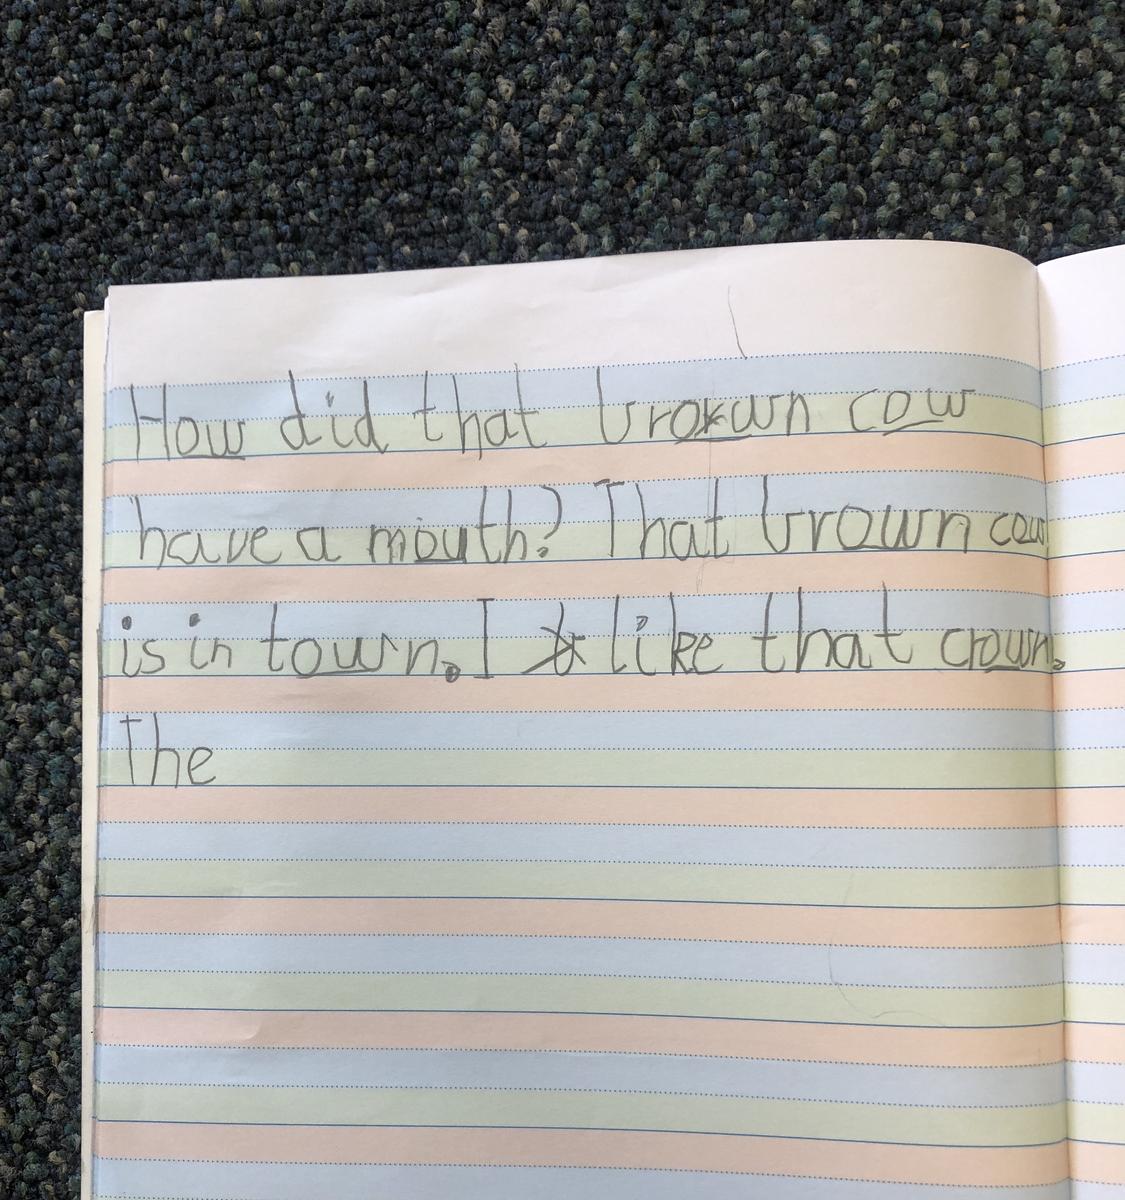 How did that brown cow
have a mouth? That brown cow
is in town. I like that crown.
The